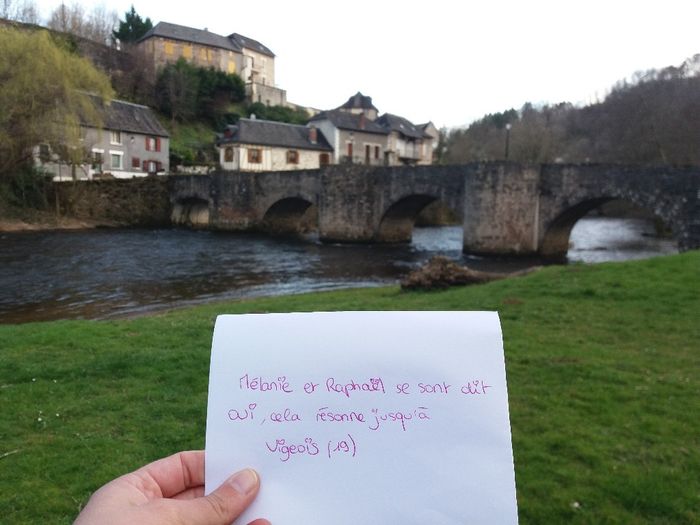 Mélanie et Raphaël se sont dit
oui, cela résonne jusqu'à
Vigeois (19)